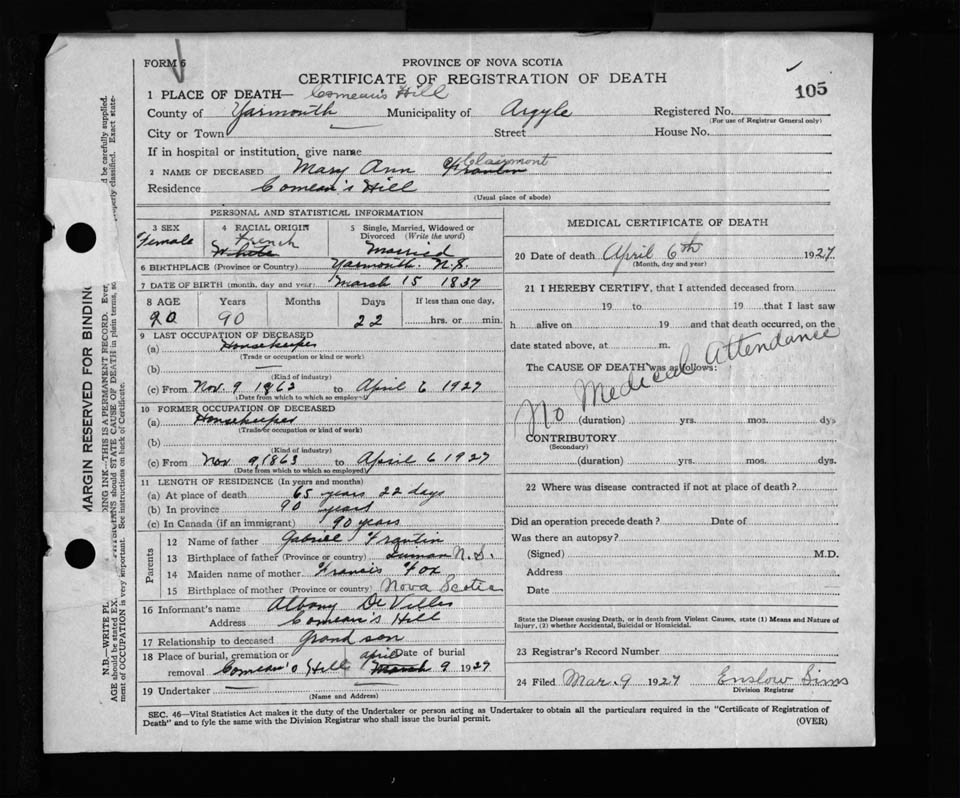 FORM 6
PROVINCE OF NOVA SCOTIA
CERTIFICATE OF REGISTRATION OF DEATH
105
1 PLACE OF DEATH— Comeau's Hill
County of Yarmouth Municipality of Argyle Registered No.
(For use of Registrar General only)
City or Town Street House No.
If in hospital or institution, give name
2 NAME OF DECEASED Mary Ann Frantin
Residence Comeau's Hill
(Usual place of abode)
PERSONAL AND STATISTICAL INFORMATION
3 SEX 4 RACIAL ORIGIN 5 Single, Married, Widowed or Divorced (Write the word)
Female French White Married
6 BIRTHPLACE (Province or Country) Yarmouth. N.S.
7 DATE OF BIRTH (month, day and year) March 15 1837
8 AGE Years Months Days If less than one day,
90 90 22 hrs. or min.
9 LAST OCCUPATION OF DECEASED
(a) Housekeeper
(Trade or occupation or kind of work)
(b)
(Kind of industry)
(c) From Nov. 9 1862 to April 6 1927
(Date from which to which so employed)
10 FORMER OCCUPATION OF DECEASED
(a) Housekeeper
(Trade or occupation or kind of work)
(b)
(Kind of industry)
(c) From Nov 9, 1863 to April 6 1927
(Date from which to which so employed)
11 LENGTH OF RESIDENCE (In years and months)
(a) At place of death 65 years 22 days
(b) In province 90 years
(c) In Canada (if an immigrant) 90 years
Parents
12 Name of father Gabriel Frantin
13 Birthplace of father (Province or country) N.S.
14 Maiden name of mother Francis Fox
15 Birthplace of mother (Province or country) Nova Scotia
16 Informant's name Albany De Villes
Address Comeau's Hill
17 Relationship to deceased Grand son
18 Place of burial, cremation or removal Comeau's Hill Date of burial April March 9 1927
19 Undertaker
(Name and Address)
MEDICAL CERTIFICATE OF DEATH
20 Date of death April 6th 1927.
(Month, day and year)
21 I HEREBY CERTIFY, that I attended deceased from
19 to 19 that I last saw
h alive on 19 and that death occurred, on the
date stated above, at m.
The CAUSE OF DEATH was as follows:
No Medical Attendance
(duration) yrs. mos. dys
CONTRIBUTORY
(Secondary)
(duration) yrs. mos. dys.
22 Where was disease contracted if not at place of death?
Did an operation precede death? Date of
Was there an autopsy?
(Signed) M.D.
Address
Date
State the Disease causing Death, or in death from Violent Causes, state (1) Means and Nature of
Injury, (2) whether Accidental, Suicidal or Homicidal.
23 Registrar's Record Number
24 Filed Mar. 9 1927 Enslow Sims
Division Registrar
SEC. 46—Vital Statistics Act makes it the duty of the Undertaker or person acting as Undertaker to obtain all the particulars required in the "Certificate of Registration of
Death" and to fyle the same with the Division Registrar who shall issue the burial permit.
(OVER)
MARGIN RESERVED FOR BINDING
N.B.—WRITE PL
DING INK—THIS IS A PERMANENT RECORD. Ever
d be carefully supplied.
AGE should be stated EX
YSICIANS should STATE CAUSE OF DEATH in plain terms, so
properly classified. Exact state-
ment of OCCUPATION is very important. See instructions on back of Certificate.